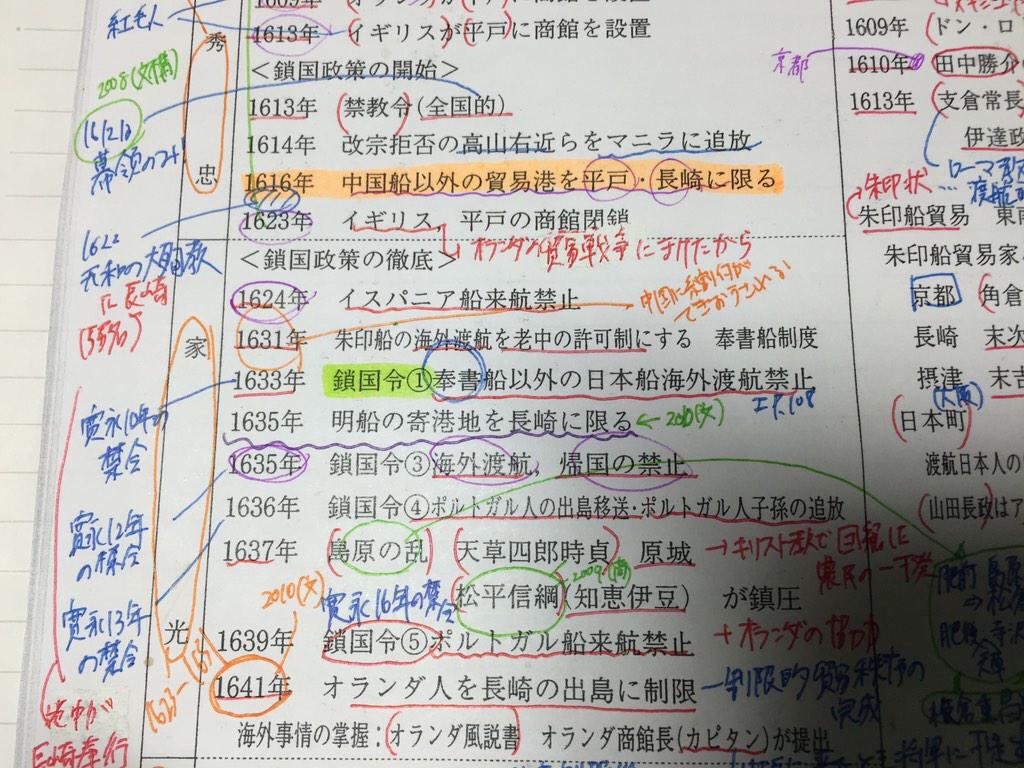 紅毛人
秀
忠
1613年 イギリスが平戸に商館を設置
<鎖国政策の開始>
1613年 禁教令(全国的)
1614年 改宗拒否の高山右近らをマニラに追放
1616年 中国船以外の貿易港を平戸・長崎に限る
1623年 イギリス，平戸の商館閉鎖
<鎖国政策の徹底>
1624年 イスパニア船来航禁止
家
光
1631年 朱印船の海外渡航を老中の許可制にする 奉書船制度
1633年 鎖国令①奉書船以外の日本船海外渡航禁止
1635年 明船の寄港地を長崎に限る
1635年 鎖国令③海外渡航，帰国の禁止
1636年 鎖国令④ポルトガル人の出島移送・ポルトガル人子孫の追放
1637年 島原の乱 天草四郎時貞 原城
松平信綱(知恵伊豆) が鎮圧
1639年 鎖国令⑤ポルトガル船来航禁止
1641年 オランダ人を長崎の出島に制限
海外事情の掌握：オランダ風説書 オランダ商館長(カピタン)が提出
1609年 ドン・ロ
1610年 田中勝介
1613年 支倉常長
伊達政
朱印船貿易 東南
朱印船貿易家
京都 角倉
長崎 末次
摂津 末吉
日本町
渡航日本人の
(山田長政はア
2008(文構)
1612は
幕領のみ
1622
元和の大殉教
に長崎
(55名)
寛永10年の
禁令
寛永12年
の禁令
寛永13年
の禁令
寛永16年の禁令
2010(文)
2009(商)
←2010(文)
京都
朱印状
(大阪)
オランダの貿易戦争にまけたから
+オランダの協力